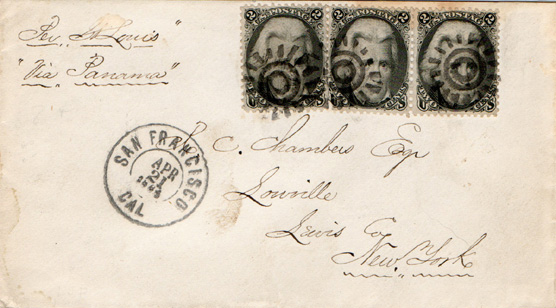 Per St Louis
"Via Panama"
2 POSTAGE 2
CENTS
2 POSTAGE 2
CENTS
2 POSTAGE 2
CENTS
SAN FRANCISCO
APR
21
CAL
C. Chambers Esqr
Lowville
Lewis Co
New York